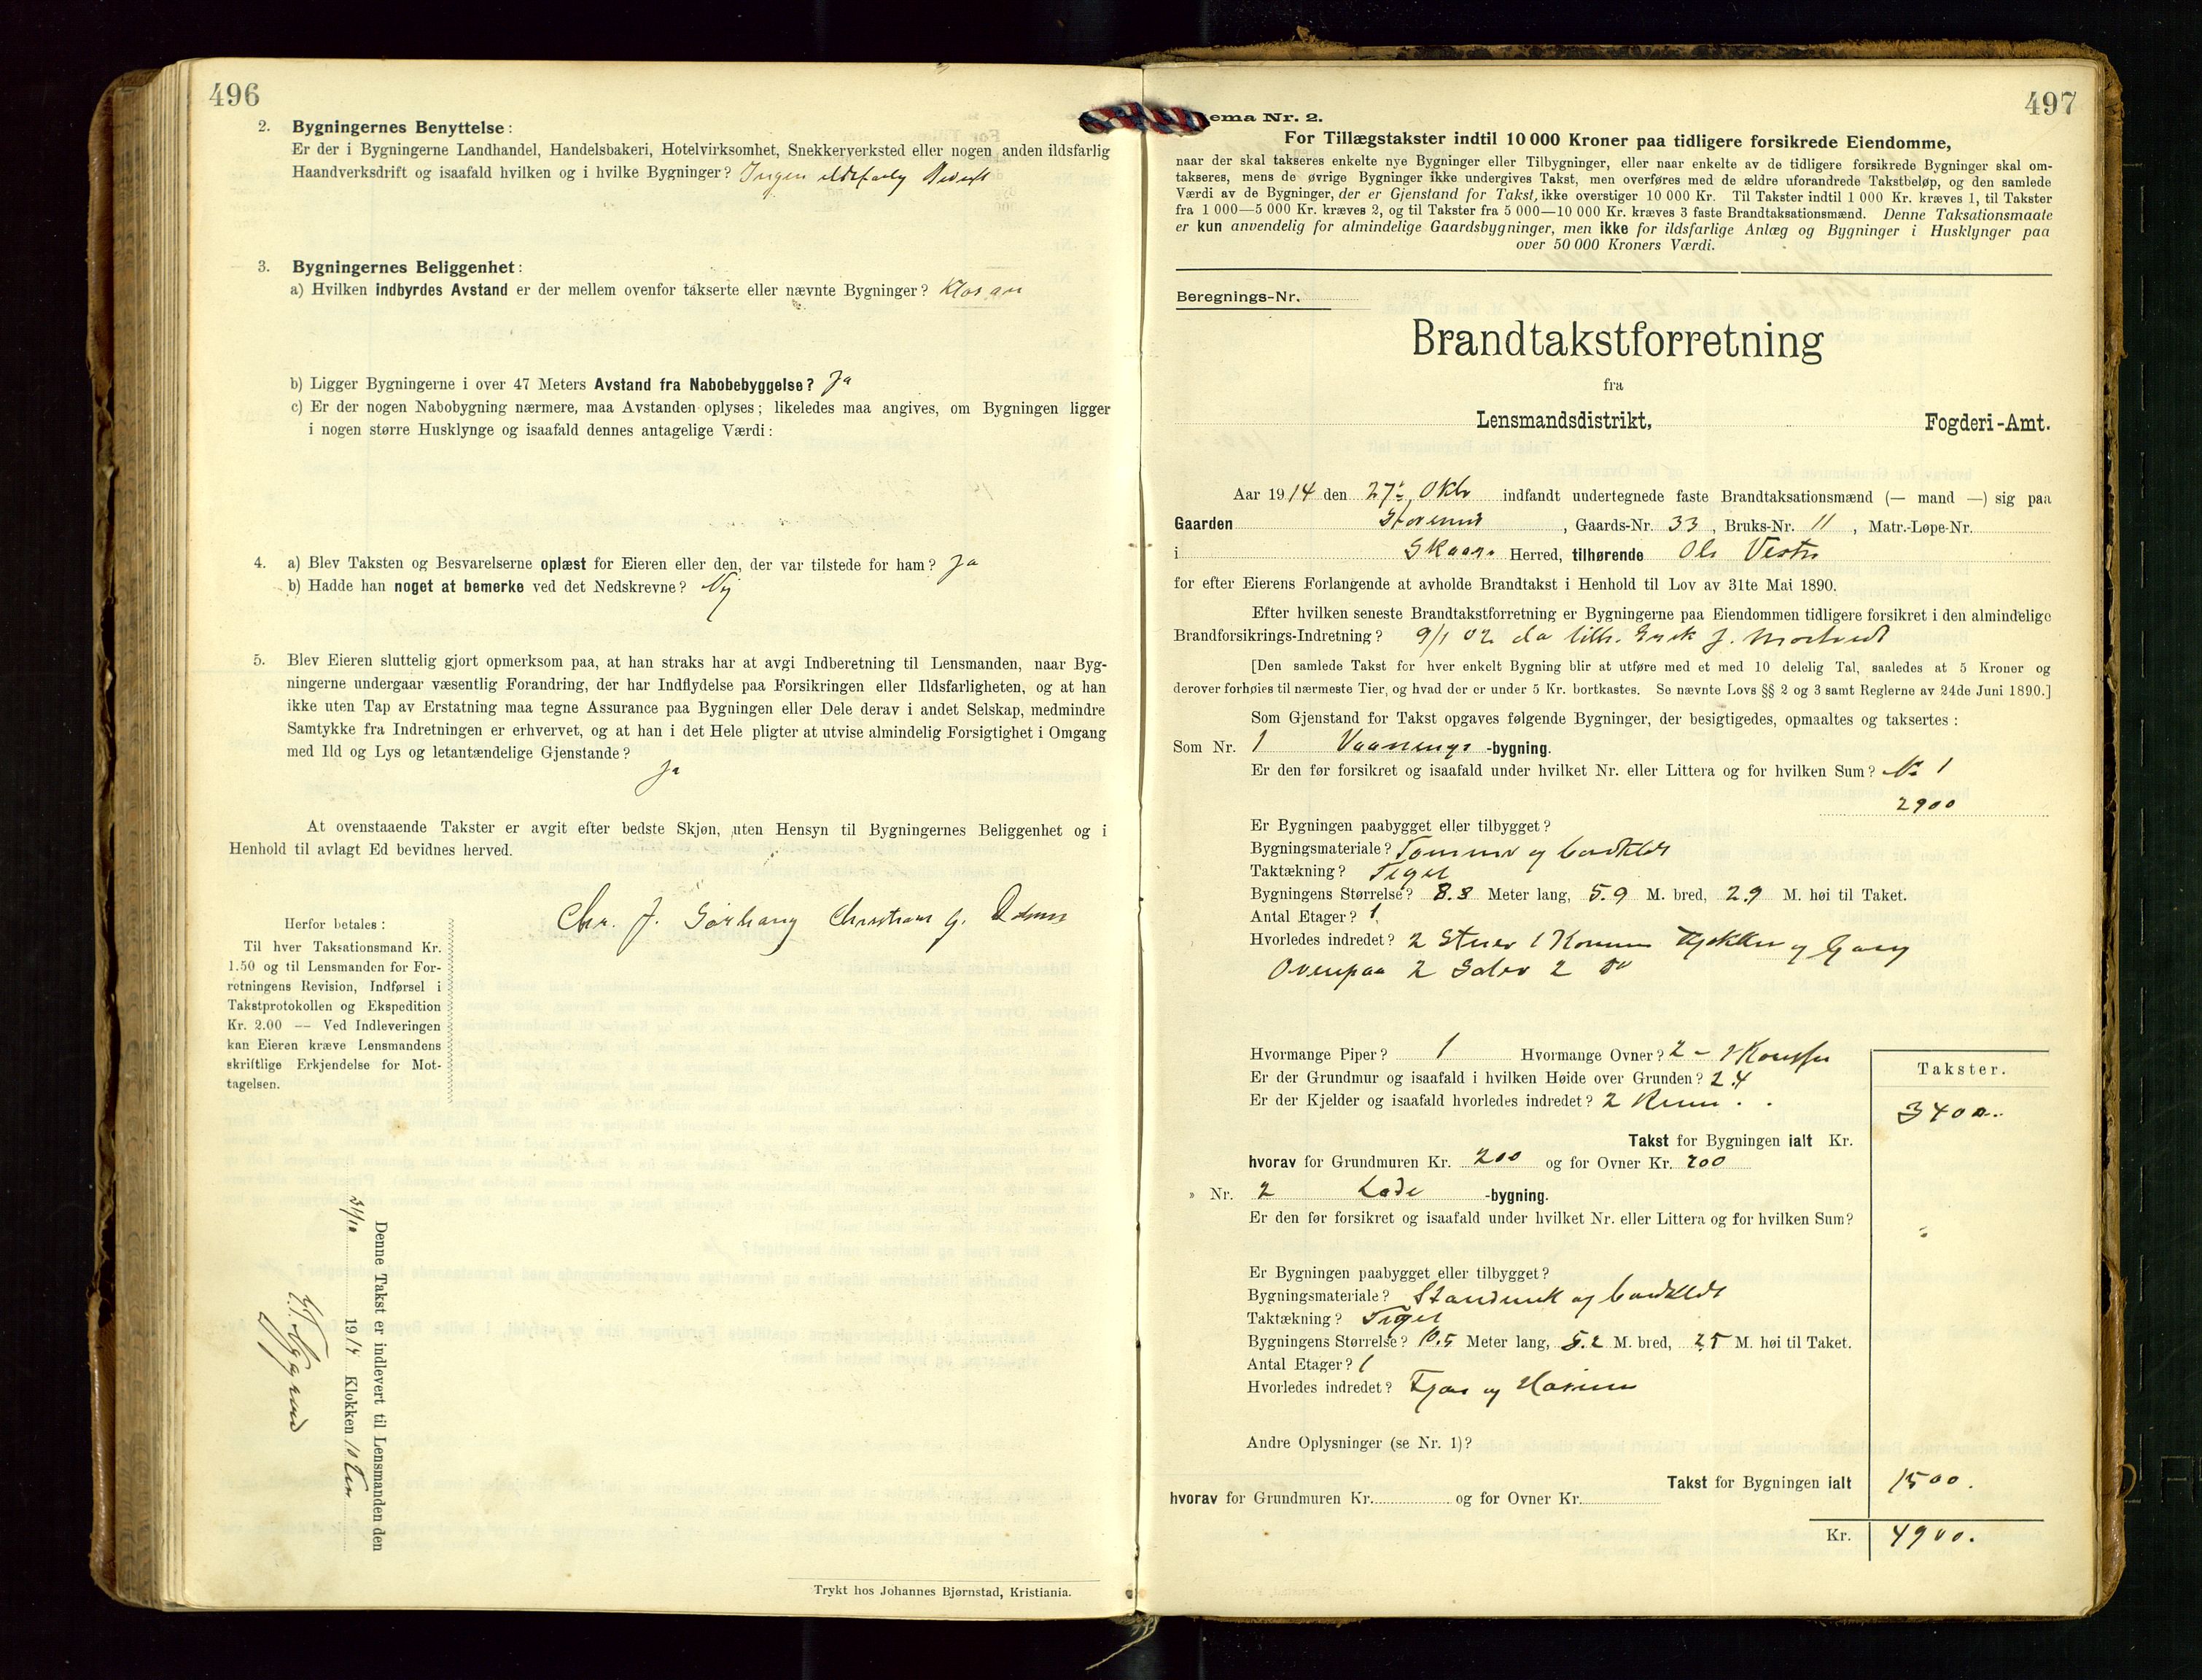 496
2. Bygningernes Benyttelse:
Er der i Bygningerne Landhandel, Handelsbakeri, Hotelvirksomhet, Snekkerverksted eller nogen anden ildsfarlig
Haandverksdrift og isaafald hvilken og i hvilke Bygninger? Ingen ildsfarlig Bedrift
3. Bygningernes Beliggenhet:
a) Hvilken indbyrdes Avstand er der mellem ovenfor takserte eller nævnte Bygninger?
b) Ligger Bygningerne i over 47 Meters Avstand fra Nabobebyggelse? Ja
c) Er der nogen Nabobygning nærmere, maa Avstanden oplyses; likeledes maa angives, om Bygningen ligger
i nogen større Husklynge og isaafald dennes antagelige Værdi:
4. a) Blev Taksten og Besvarelserne oplæst for Eieren eller den, der var tilstede for ham? Ja
b) Hadde han noget at bemerke ved det Nedskrevne? Nej
5. Blev Eieren sluttelig gjort opmerksom paa, at han straks har at avgi Indberetning til Lensmanden, naar Byg-
ningerne undergaar væsentlig Forandring, der har Indflydelse paa Forsikringen eller Ildsfarligheten, og at han
ikke uten Tap av Erstatning maa tegne Assurance paa Bygningen eller Dele derav i andet Selskap, medmindre
Samtykke fra Indretningen er erhvervet, og at han i det Hele pligter at utvise almindelig Forsigtighet i Omgang
med Ild og Lys og letantændelige Gjenstande?
Ja
At ovenstaaende Takster er avgit efter bedste Skjøn, uten Hensyn til Bygningernes Beliggenhet og i
Henhold til avlagt Ed bevidnes herved.
Chr. J. Sørhaug
Herfor betales:
Til hver Taksationsmand Kr.
1.50 og til Lensmanden for For-
retningens Revision, Indførsel i
Takstprotokollen og Ekspedition
Kr. 2.00 — Ved Indleveringen
kan Eieren kræve Lensmandens
skriftlige Erkjendelse for Mot-
tagelsen.
Denne Takst er indlevert til Lensmanden den
31/10 1914 Klokken 10
Trykt hos Johannes Bjørnstad, Kristiania.
497
ema Nr. 2.
For Tillægstakster indtil 10 000 Kroner paa tidligere forsikrede Eiendomme,
naar der skal takseres enkelte nye Bygninger eller Tilbygninger, eller naar enkelte av de tidligere forsikrede Bygninger skal om-
takseres, mens de øvrige Bygninger ikke undergives Takst, men overføres med de ældre uforandrede Takstbeløp, og den samlede
Værdi av de Bygninger, der er Gjenstand for Takst, ikke overstiger 10 000 Kr. Til Takster indtil 1 000 Kr. kræves 1, til Takster
fra 1 000—5 000 Kr. kræves 2, og til Takster fra 5 000—10 000 Kr. kræves 3 faste Brandtaksationsmænd. Denne Taksationsmaate
er kun anvendelig for almindelige Gaardsbygninger, men ikke for ildsfarlige Anlæg og Bygninger i Husklynger paa
over 50 000 Kroners Værdi.
Beregnings-Nr.
Brandtakstforretning
fra
Lensmandsdistrikt, Fogderi-Amt.
Aar 1914 den 27' Oktb indfandt undertegnede faste Brandtaksationsmænd (— mand —) sig paa
Gaarden , Gaards-Nr. 33, Bruks-Nr. 11, Matr.-Løpe-Nr.
i Skaare Herred, tilhørende Ole
for efter Eierens Forlangende at avholde Brandtakst i Henhold til Lov av 31te Mai 1890.
Efter hvilken seneste Brandtakstforretning er Bygningerne paa Eiendommen tidligere forsikret i den almindelige
Brandforsikrings-Indretning? 9/1 02 da tilh.
[Den samlede Takst for hver enkelt Bygning blir at utføre med et med 10 delelig Tal, saaledes at 5 Kroner og
derover forhøies til nærmeste Tier, og hvad der er under 5 Kr. bortkastes. Se nævnte Lovs §§ 2 og 3 samt Reglerne av 24de Juni 1890.]
Som Gjenstand for Takst opgaves følgende Bygninger, der besigtigedes, opmaaltes og taksertes:
Som Nr. 1 Vaanings -bygning.
Er den før forsikret og isaafald under hvilket Nr. eller Littera og for hvilken Sum? No 1
2900
Er Bygningen paabygget eller tilbygget?
Bygningsmateriale? Tømmer og bordklædt
Taktækning? Tegel
Bygningens Størrelse? 8.3 Meter lang, 5.9 M. bred, 2.9 M. høi til Taket.
Antal Etager? 1
Hvorledes indredet? 2 Stuer 1 Kammer Kjøkken og Gang
Ovenpaa 2 Saler 2
Hvormange Piper? 1 Hvormange Ovner? 2 –
Er der Grundmur og isaafald i hvilken Høide over Grunden? 2.4
Er der Kjelder og isaafald hvorledes indredet? 2 Rum
Takster.
3400.
Takst for Bygningen ialt Kr.
hvorav for Grundmuren Kr. 200 og for Ovner Kr. 200
» Nr. 2 Lade -bygning.
Er den før forsikret og isaafald under hvilket Nr. eller Littera og for hvilken Sum?
Er Bygningen paabygget eller tilbygget?
Bygningsmateriale? Standverk og bordklædt
Taktækning? Tegel
Bygningens Størrelse? 10.5 Meter lang, 5.2 M. bred, 2.5 M. høi til Taket.
Antal Etager? 1
Hvorledes indredet? Fjøs og Hørum
Andre Oplysninger (se Nr. 1)?
Takst for Bygningen ialt 1500.
hvorav for Grundmuren Kr. og for Ovner Kr.
Kr. 4900.